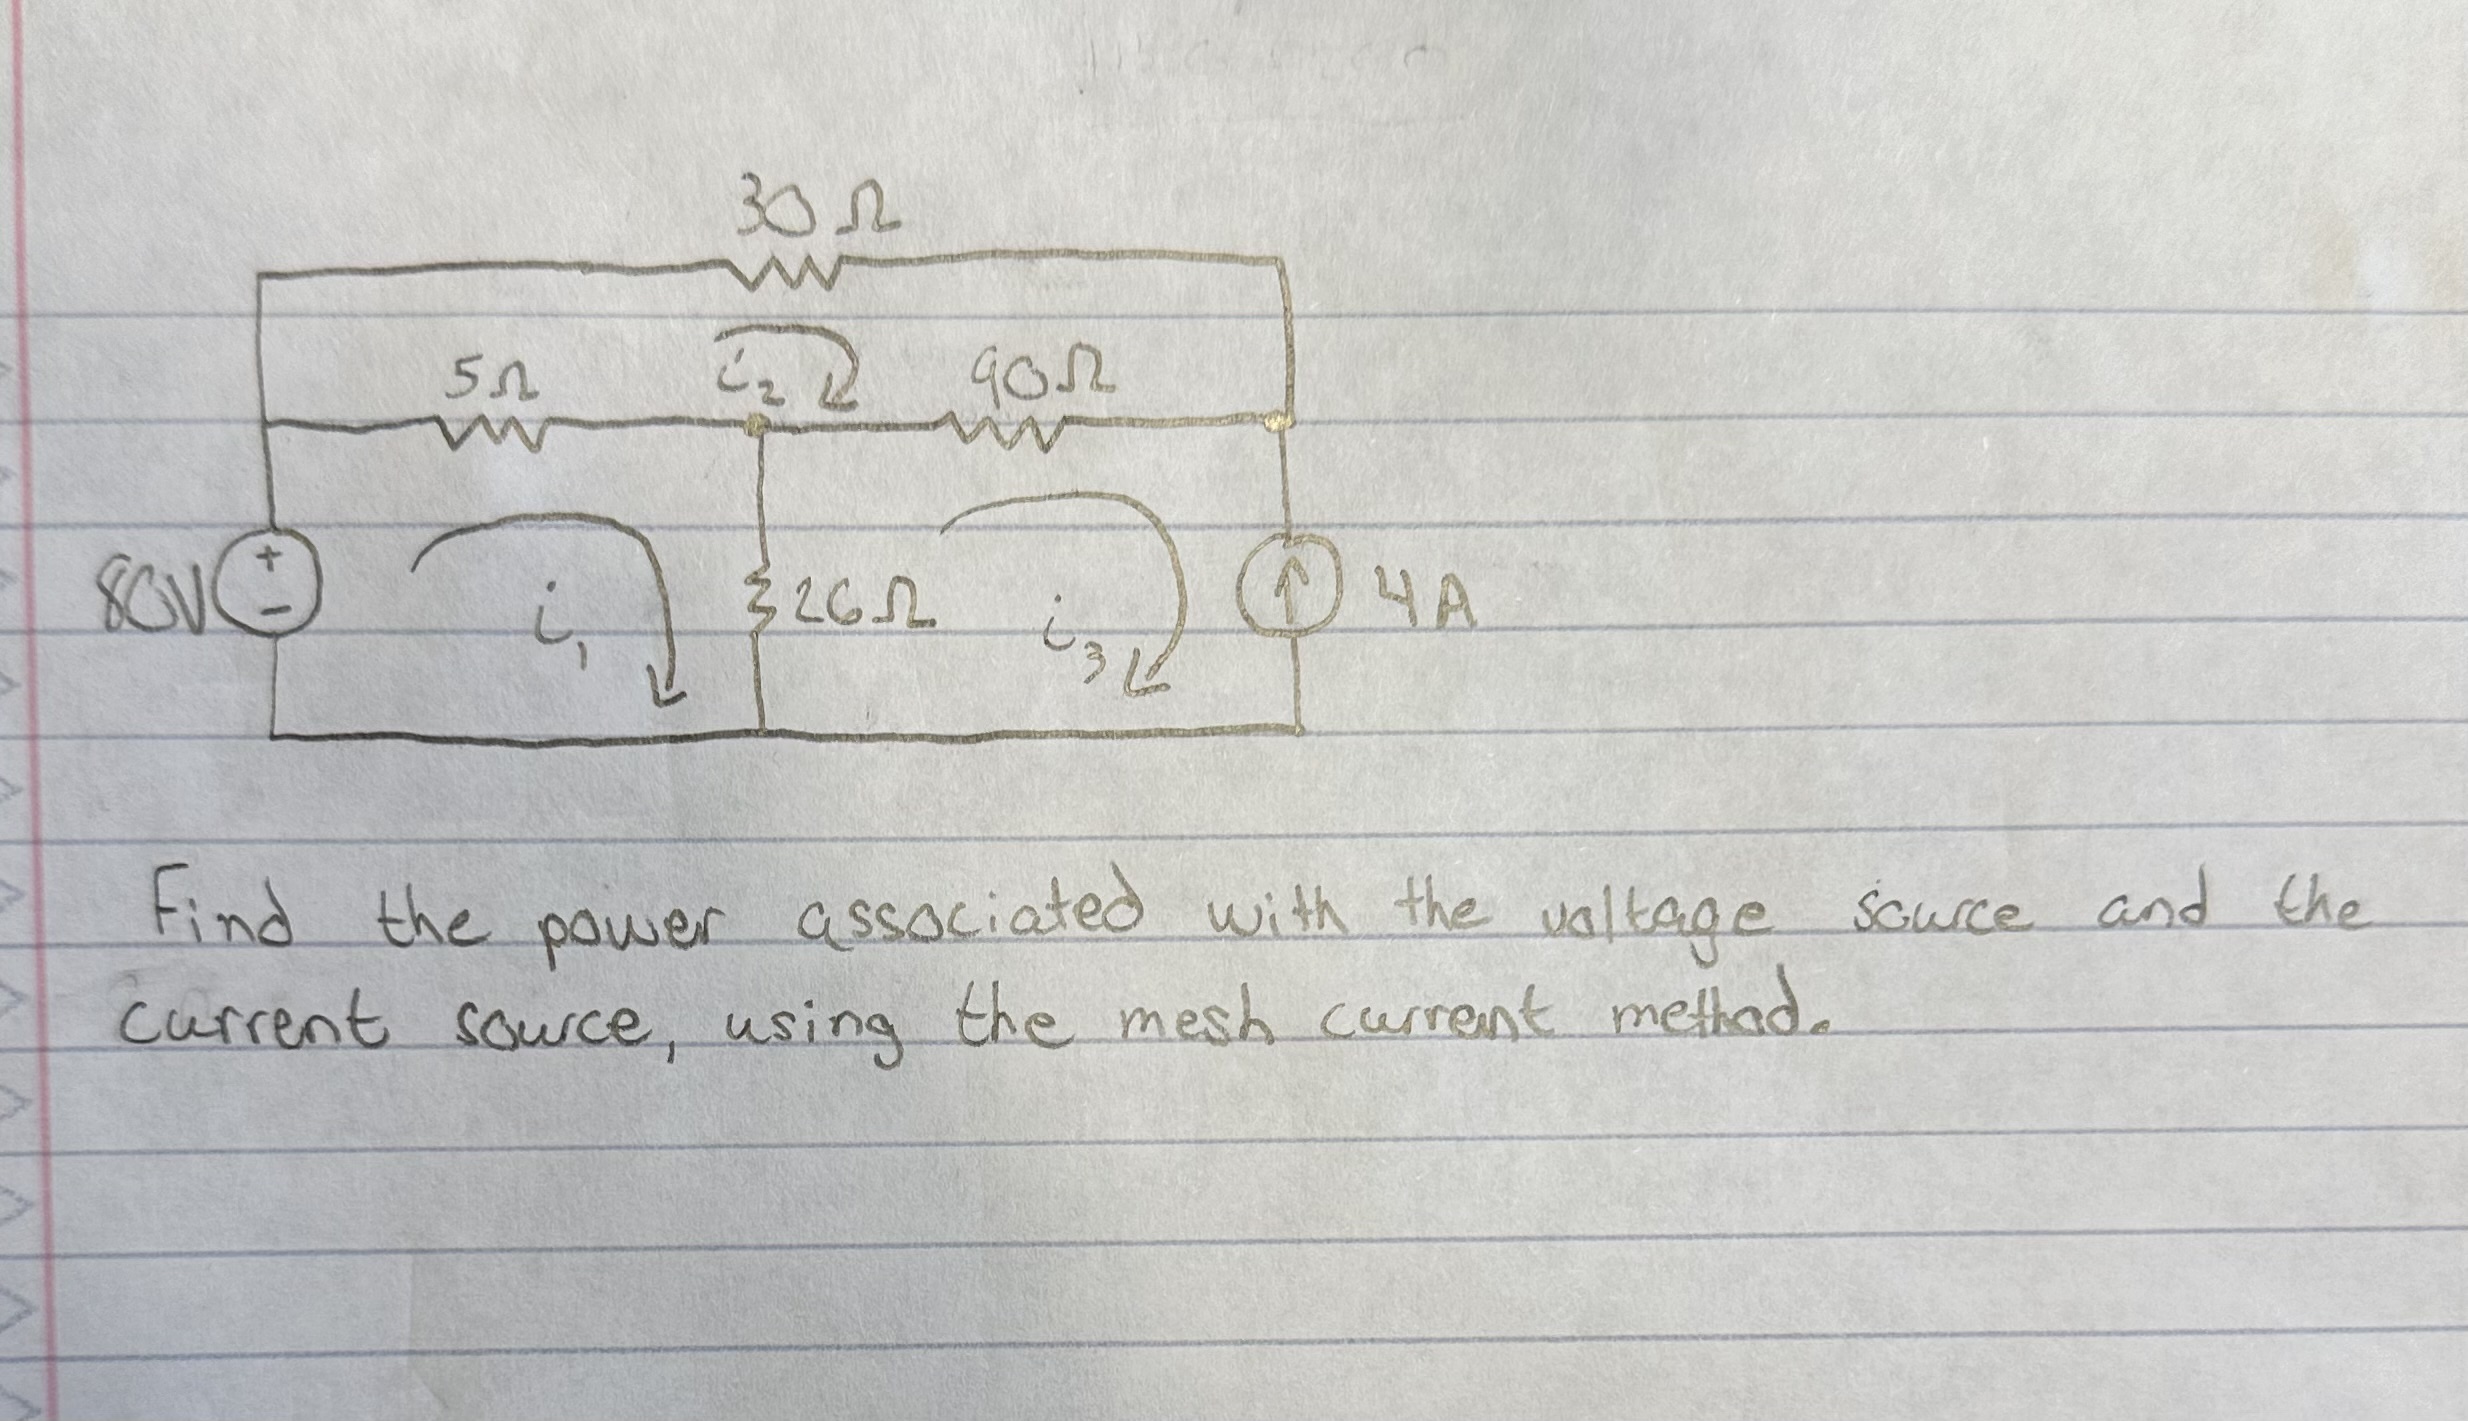 30Ω
5Ω i₂ 90Ω
80V + − i₁ 26Ω i₃ 4A
Find the power associated with the voltage source and the
current source, using the mesh current method.